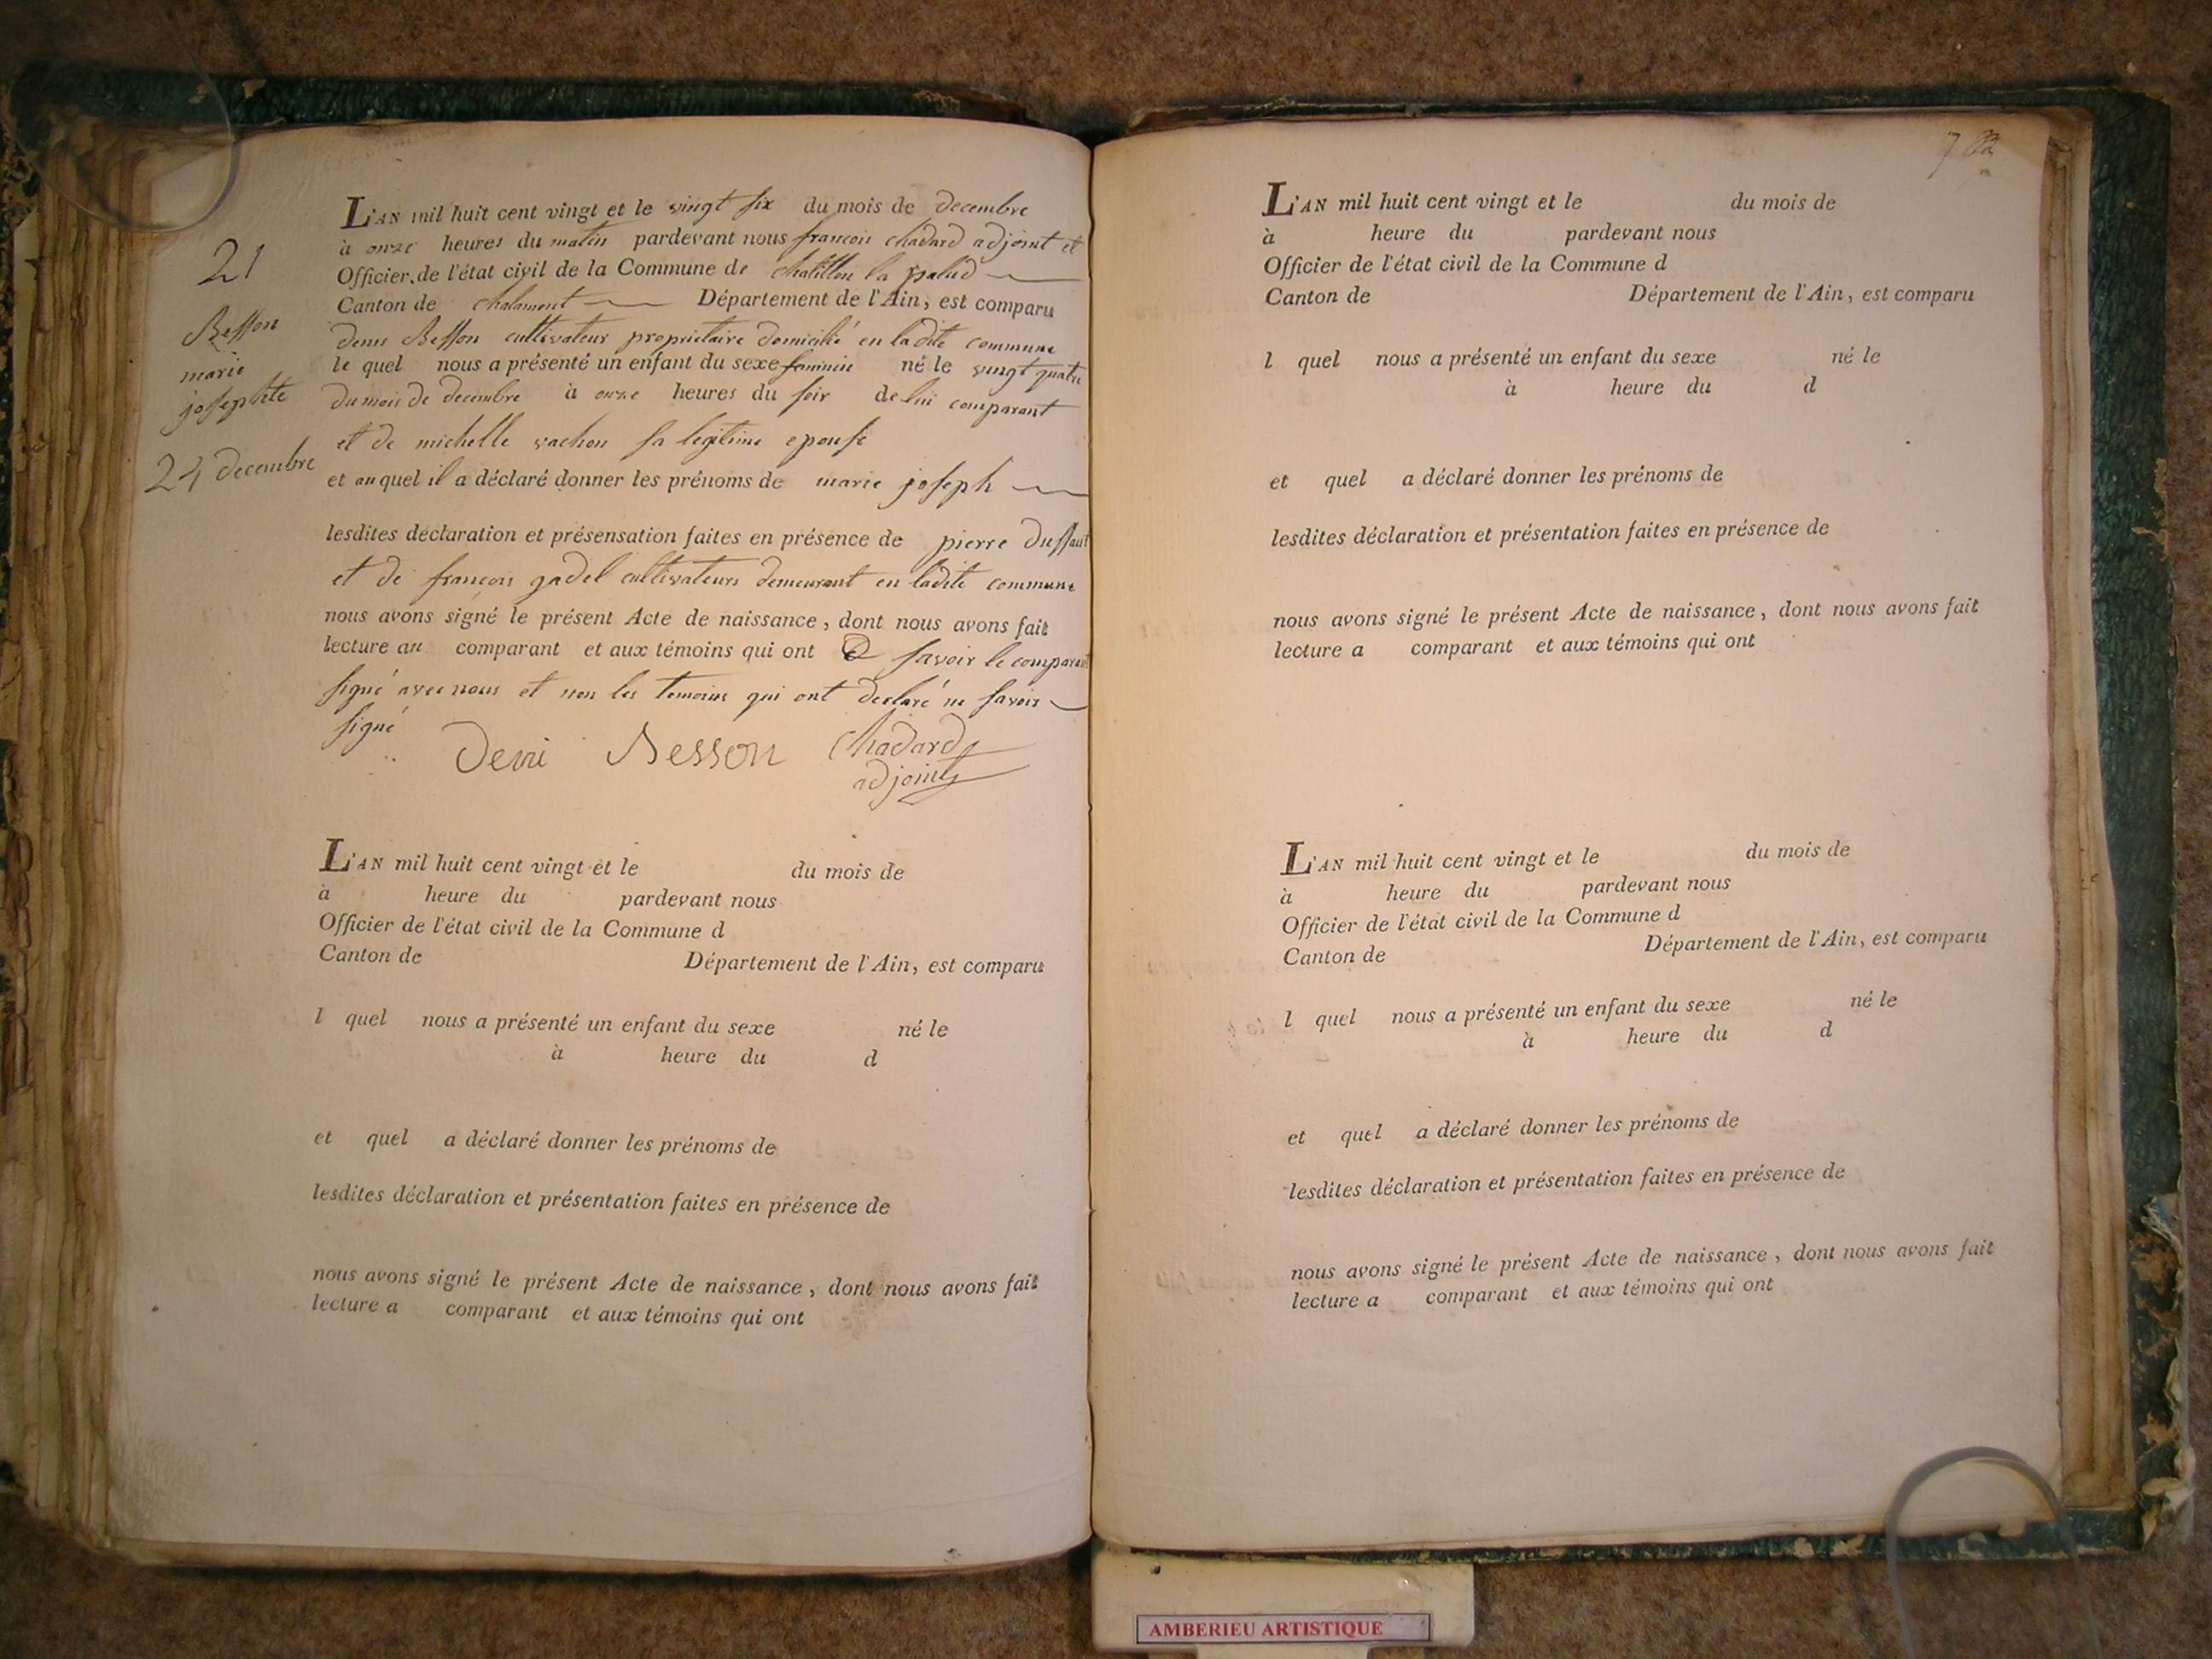 21
Besson
marie
josephte
24 decembre
L'AN mil huit cent vingt et le vingt six du mois de decembre
à onze heures du matin pardevant nous francois chadard adjoint et
Officier de l'état civil de la Commune de chatillon la palud
Canton de chalamont Département de l'Ain, est comparu
denis Besson cultivateur proprietaire domicilié en ladite commune
le quel nous a présenté un enfant du sexe feminin né le vingt quatre
du mois de decembre à onze heures du soir de lui comparant
et de michelle vachon sa legitime epouse
et au quel il a déclaré donner les prénoms de marie joseph
lesdites declaration et présensation faites en présence de pierre
et de françois gadel cultivateurs demeurant en ladite commune
nous avons signé le présent Acte de naissance, dont nous avons fait
lecture au comparant et aux témoins qui ont savoir le comparant
signé avec nous et non les temoins qui ont declaré ne savoir
signé
Deni Besson chadard
adjoint
L'AN mil huit cent vingt et le du mois de
à heure du pardevant nous
Officier de l'état civil de la Commune d
Canton de Département de l'Ain, est comparu
l quel nous a présenté un enfant du sexe né le
à heure du d
et quel a déclaré donner les prénoms de
lesdites déclaration et présentation faites en présence de
nous avons signé le présent Acte de naissance, dont nous avons fait
lecture a comparant et aux témoins qui ont
L'AN mil huit cent vingt et le du mois de
à heure du pardevant nous
Officier de l'état civil de la Commune d
Canton de Département de l'Ain, est comparu
l quel nous a présenté un enfant du sexe né le
à heure du d
et quel a déclaré donner les prénoms de
lesdites déclaration et présentation faites en présence de
nous avons signé le présent Acte de naissance, dont nous avons fait
lecture a comparant et aux témoins qui ont
L'AN mil huit cent vingt et le du mois de
à heure du pardevant nous
Officier de l'état civil de la Commune d
Canton de Département de l'Ain, est comparu
l quel nous a présenté un enfant du sexe né le
à heure du d
et quel a déclaré donner les prénoms de
lesdites déclaration et présentation faites en présence de
nous avons signé le présent Acte de naissance, dont nous avons fait
lecture a comparant et aux témoins qui ont
AMBERIEU ARTISTIQUE